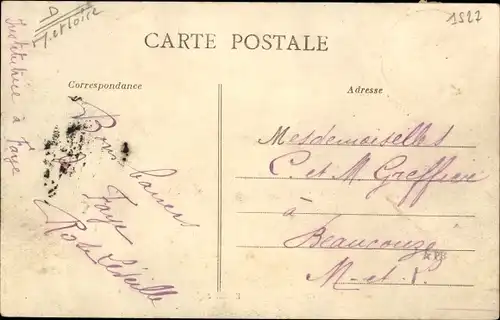 D
M. et Loire
1522
CARTE POSTALE
Correspondance
Adresse
Institutrice à Faye
Bons baisers
Faye
Mesdemoiselles
C. et M. Greffier
à
Beaucouzé
M-et-L.